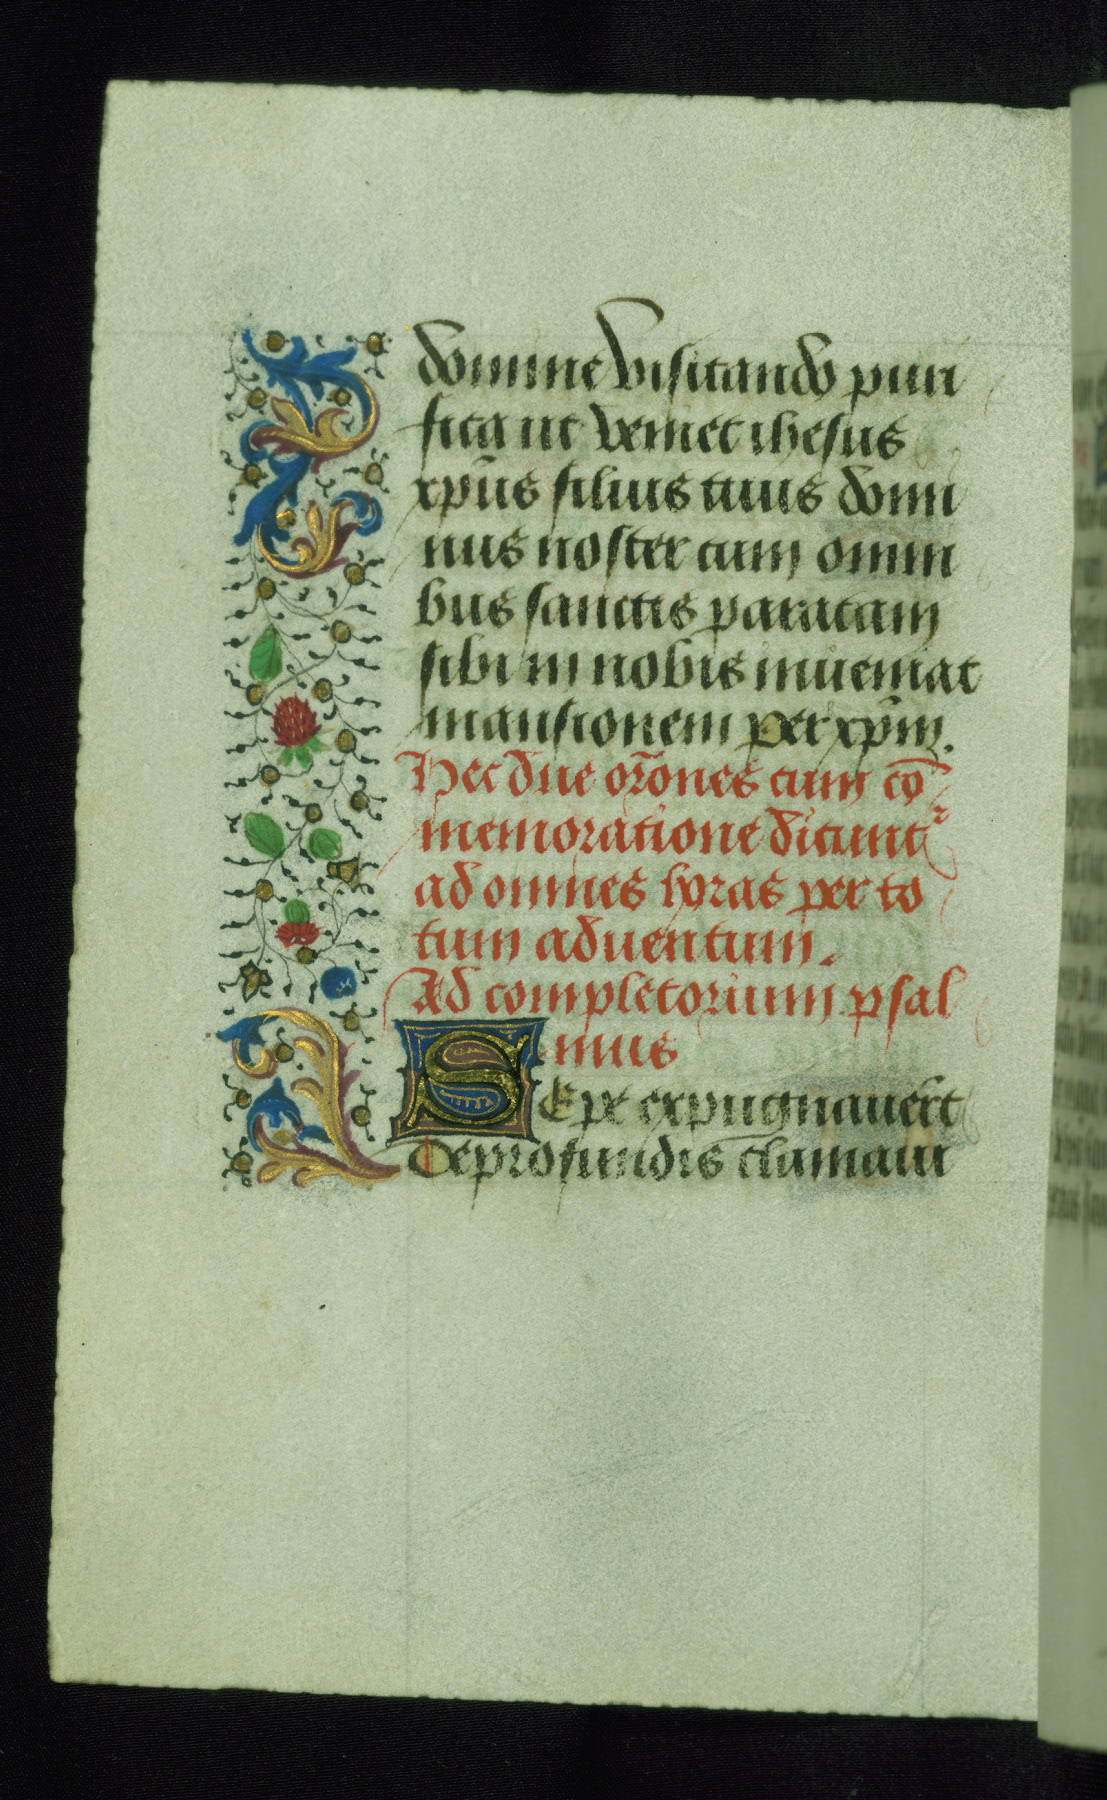 domine visitando puri
fica ut veniet ihesus
xp̄us filius tuus domi
nus noster cum omni
bus sanctis paratam
sibi in nobis inueniat
mansionem per xp̄m.
Hec due or̄ones cum cō
memoratione dicunt᷑
ad omnes horas per to
tum aduentum.
Ad completorium psal
mus
SEpe expugnauer̄t
De profundis clamaui